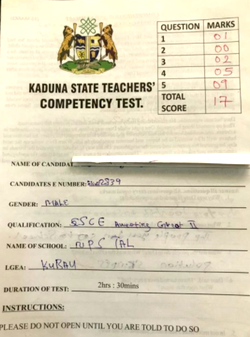 QUESTION MARKS
1 01
2 00
3 02
4 05
5 09
TOTAL SCORE 17
KADUNA STATE TEACHERS'
COMPETENCY TEST.
NAME OF CANDIDA
CANDIDATES E NUMBER:
GENDER: MALE
QUALIFICATION: SSCE
NAME OF SCHOOL:
LGEA: KUBAU
DURATION OF TEST: 2hrs : 30mins
INSTRUCTIONS:
PLEASE DO NOT OPEN UNTIL YOU ARE TOLD TO DO SO